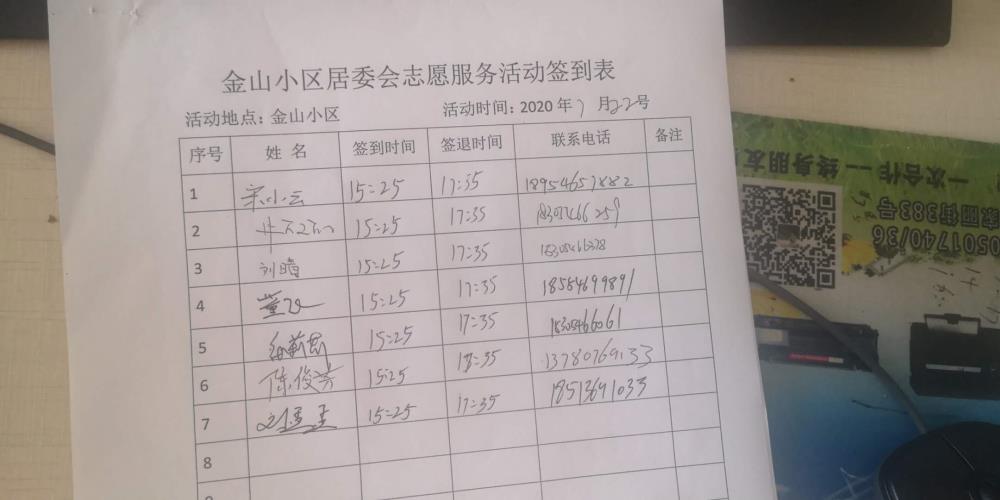 金山小区居委会志愿服务活动签到表
活动地点:金山小区 活动时间:2020年7月22号
序号 姓名 签到时间 签退时间 联系电话 备注
1 宋小云 15:25 17:35 18954657882
2 15:25 17:35
3 刘晴 15:25 17:35
4 15:25 17:35 18584699891
5 15:25 17:35 18305466061
6 陈俊芳 15:25 17:35 13780769133
7 15:25 17:35 18513691033
8
一次合作 一 终身朋友
街383号
0501740/36